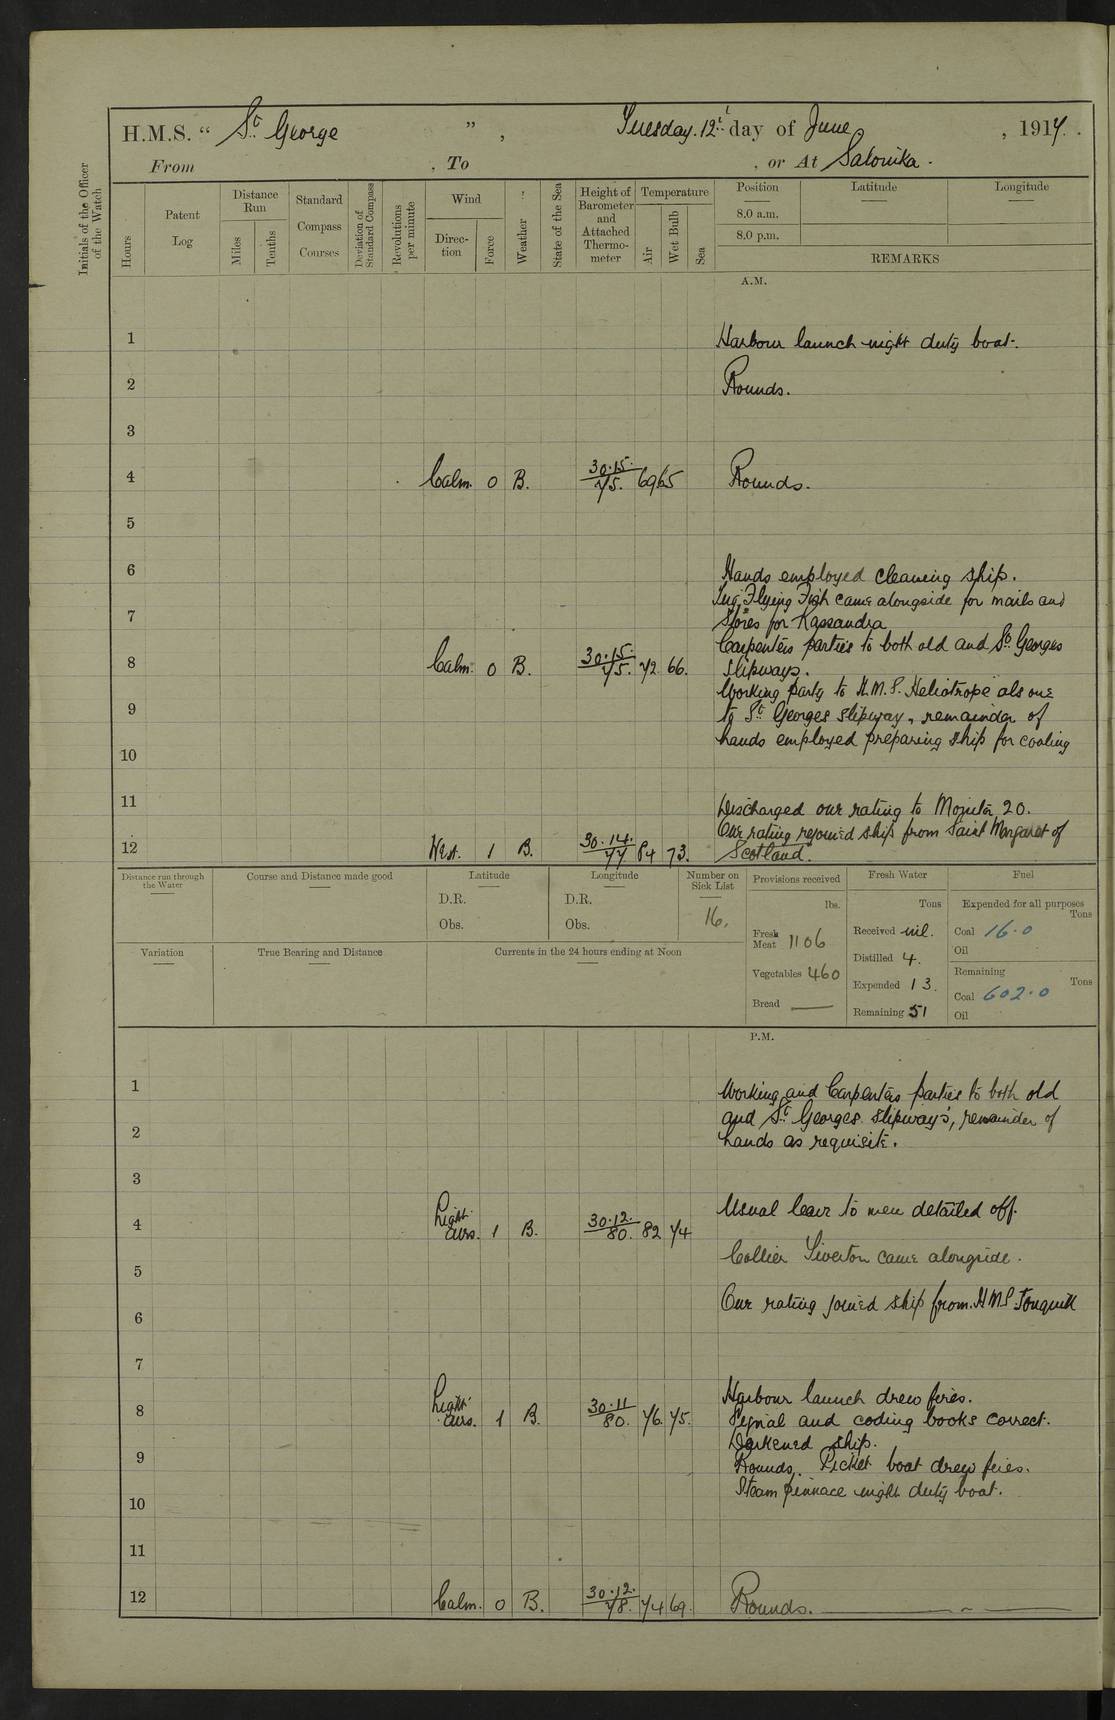 H.M.S. “ St George ” , Tuesday. 12th day of June , 1917.
From , To , or At Salonika.
Initials of the Officer of the Watch
Hours
Patent Log
Distance Run
Miles
Tenths
Standard Compass Courses
Deviation of Standard Compass
Revolutions per minute
Wind
Direction
Force
Weather
State of the Sea
Height of Barometer and Attached Thermometer
Temperature
Air
Wet Bulb
Sea
Position Latitude Longitude
8.0 a.m.
8.0 p.m.
REMARKS
A.M.
1 Harbour launch night duty boat.
2 Rounds.
3
4 Calm. 0 B. 30.15. 75. 69 65 Rounds.
5
6 Hands employed cleaning ship.
Tug Flying Fish came alongside for mails and
7 Stores for Kassandra
Carpenters parties to both old and St. Georges
8 Calm. 0 B. 30.15. 75. 72. 66. slipways.
Working party to H.M.S. Heliotrope als one
9 to St Georges slipway, remainder of
hands employed preparing ship for coaling
10
11 Discharged one rating to Monitor 20.
One rating rejoined ship from Saint Margaret of
12 West. 1 B. 30.14. 77 84 73. Scotland.
Distance run through the Water
Course and Distance made good
Latitude
D.R.
Obs.
Longitude
D.R.
Obs.
Number on Sick List
16.
Provisions received
lbs.
Fresh Meat 1106
Vegetables 460
Bread —
Fresh Water
Tons
Received nil.
Distilled 4.
Expended 13.
Remaining 51
Fuel
Expended for all purposes
Tons
Coal 16.0
Oil
Remaining
Tons
Coal 602.0
Oil
Variation
True Bearing and Distance
Currents in the 24 hours ending at Noon
P.M.
1 Working and Carpenters parties to both old
and St Georges slipways, remainder of
2 hands as requisite.
3
4 Light airs. 1 B. 30.12. 80. 82 74 Usual leave to men detailed off.
Collier Tiverton came alongside.
5
One rating joined ship from H.M.S. Jonquil
6
7
Harbour launch drew fires.
8 Light airs. 1 B. 30.11 80. 76. 75. Signal and coding books correct.
Darkened ship.
9 Rounds. Picket boat drew fires.
Steam pinnace night duty boat.
10
11
12 Calm. 0 B. 30.12. 78. 74 69. Rounds.